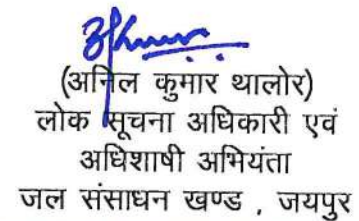 (अनिल कुमार थालोर)
लोक सूचना अधिकारी एवं
अधिशाषी अभियंता
जल संसाधन खण्ड , जयपुर